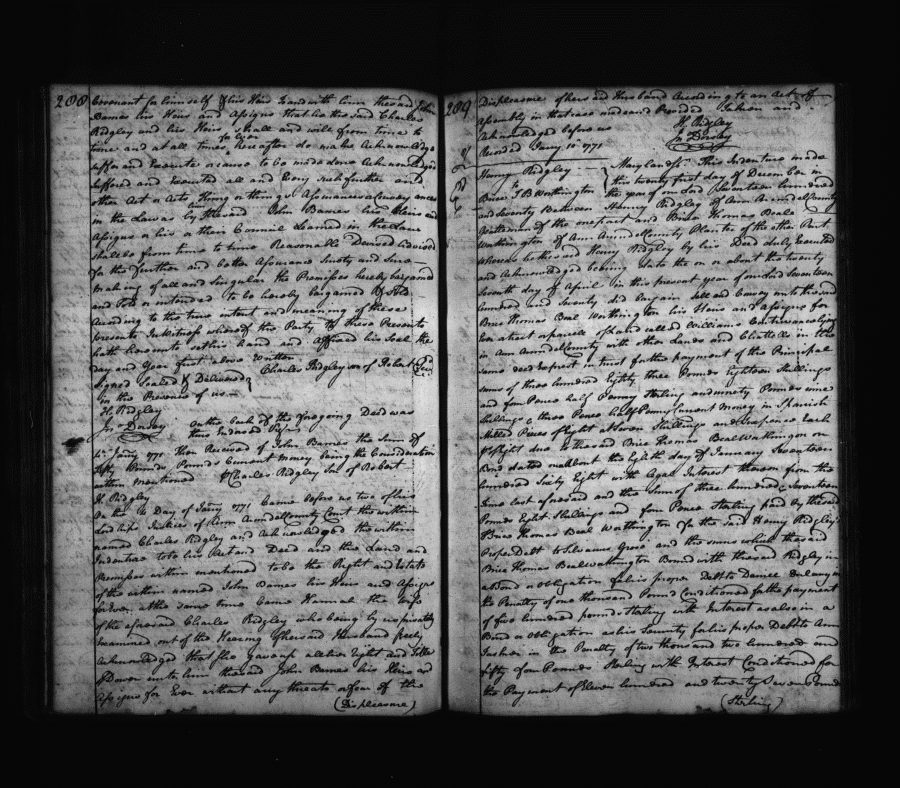 208
Covenant for himself & his Heirs to and with him the said John
Barnes his Heirs and Assigns that he the said Charles
Ridgley and his Heirs Shall and will from time to
time and at all times for Ever Hereafter do make Acknowledge
suffer and Execute or cause to be made done Acknowledged
Suffered and Executed all and Every such further and
other Act or Acts thing or things Assurances & Conveyances
in the Law as by the said John Barnes his Heirs and
Assigns or his or their Council Learned in the Law
shall be from time to time Reasonably Devised Advised
for the further and better Assurance Surety and Sure
making of all and Singular the Premises hereby bargained
and Sold or intended to be hereby bargained & Sold
According to the true intent and meaning of these
presents In Witness whereof the Party to these Presents
hath hereunto set his hand and Affixed his Seal the
day and Year first above Written
Signed Sealed & Delivered Charles Ridgley son of Robert
in the Presence of us
H. Ridgley
Jno Dorsey on the Back of the foregoing Deed was
thus Endorsed
Jany 1771 then Received of John Barnes the Sum of
fifty Pounds Current Money being the Consideration
within Mentioned Charles Ridgley Son of Robert
H. Ridgley
On the Day of Jany 1771 Came before us two of his
Lordships Justices of Ann Arundel County Court the within
named Charles Ridgley and Acknowledged the within
Indenture to be his Act and Deed and the Land and
Premises within mentioned to be the Right and Estate
of the within named John Barnes his Heirs and Assigns
forever at the same time Came Hannah the wife
of the aforesaid Charles Ridgley who being by us privately
Examined out of the Hearing of her said Husband freely
Acknowledged that She gave up all her Right and Title
of Dower unto him the said John Barnes his Heirs and
Assigns for Ever without any threats or fear of the
(Displeasure)
209
Displeasure of her said Husband According to an Act of
Assembly in that case made and Provided
Acknowledged before us H Ridgley
J Dorsey
Record Jany 10 1771
Henry Ridgley Maryland ss This Indenture made
to this twenty first day of December in
Brice T B Worthington the year of our Lord Seventeen hundred
and Seventy Between Henry Ridgley of Ann Arundel County
Gentleman of the one part and Brice Thomas Beale
Worthington of Ann Arundel County Planter of the other Part
whereas he the said Henry Ridgley by his Deed duly Executed
and Acknowledged bearing date the on or about the twenty
Seventh day of April in this present year of our Lord Seventeen
hundred and Seventy did bargain Sell and Convey unto the said
Brice Thomas Beal Worthington his Heirs and Assigns for
Ever a tract or parcell of Land called Williams Contrivance lying
in Ann Arundel County with other Lands and Chattells in the
same deed Exprest in trust for the payment of the Principal
sums of three hundred Eighty three Pounds Eighteen Shillings
and four Pence half Penny Sterling and ninety Pounds nine
Shillings & three Pence half Penny Current Money in Spanish
Milled Pieces of Eight at seven Shillings and Sixpence Each
of Eight due to the said Brice Thomas Beal Worthington on
Bond dated on about the Eighth day of January Seventeen
hundred Sixty Eight with Legal Interest thereon from the
time last aforesaid and the Sum of three hundred & Seventeen
Pounds Eight Shillings and four Pence Sterling paid by the said
Brice Thomas Beal Worthington for the said Henry Ridgley's
Proper Debt to Silvanus Grove and the sums which the said
Brice Thomas Beal Worthington Bound with the said Ridgley in
a Bond or obligation for his proper Debt to Daniel Dulany in
the Penalty of one thousand Pound Conditioned for the payment
of five hundred pounds Sterling with Interest as also in a
Bond or obligation as his Security for his proper Debt to Ann
Tasker in the Penalty of two thousand two hundred and
fifty four Pounds Sterling with Interest Conditioned for
the Payment of Eleven hundred and twenty Seven Pound
(Sterling)